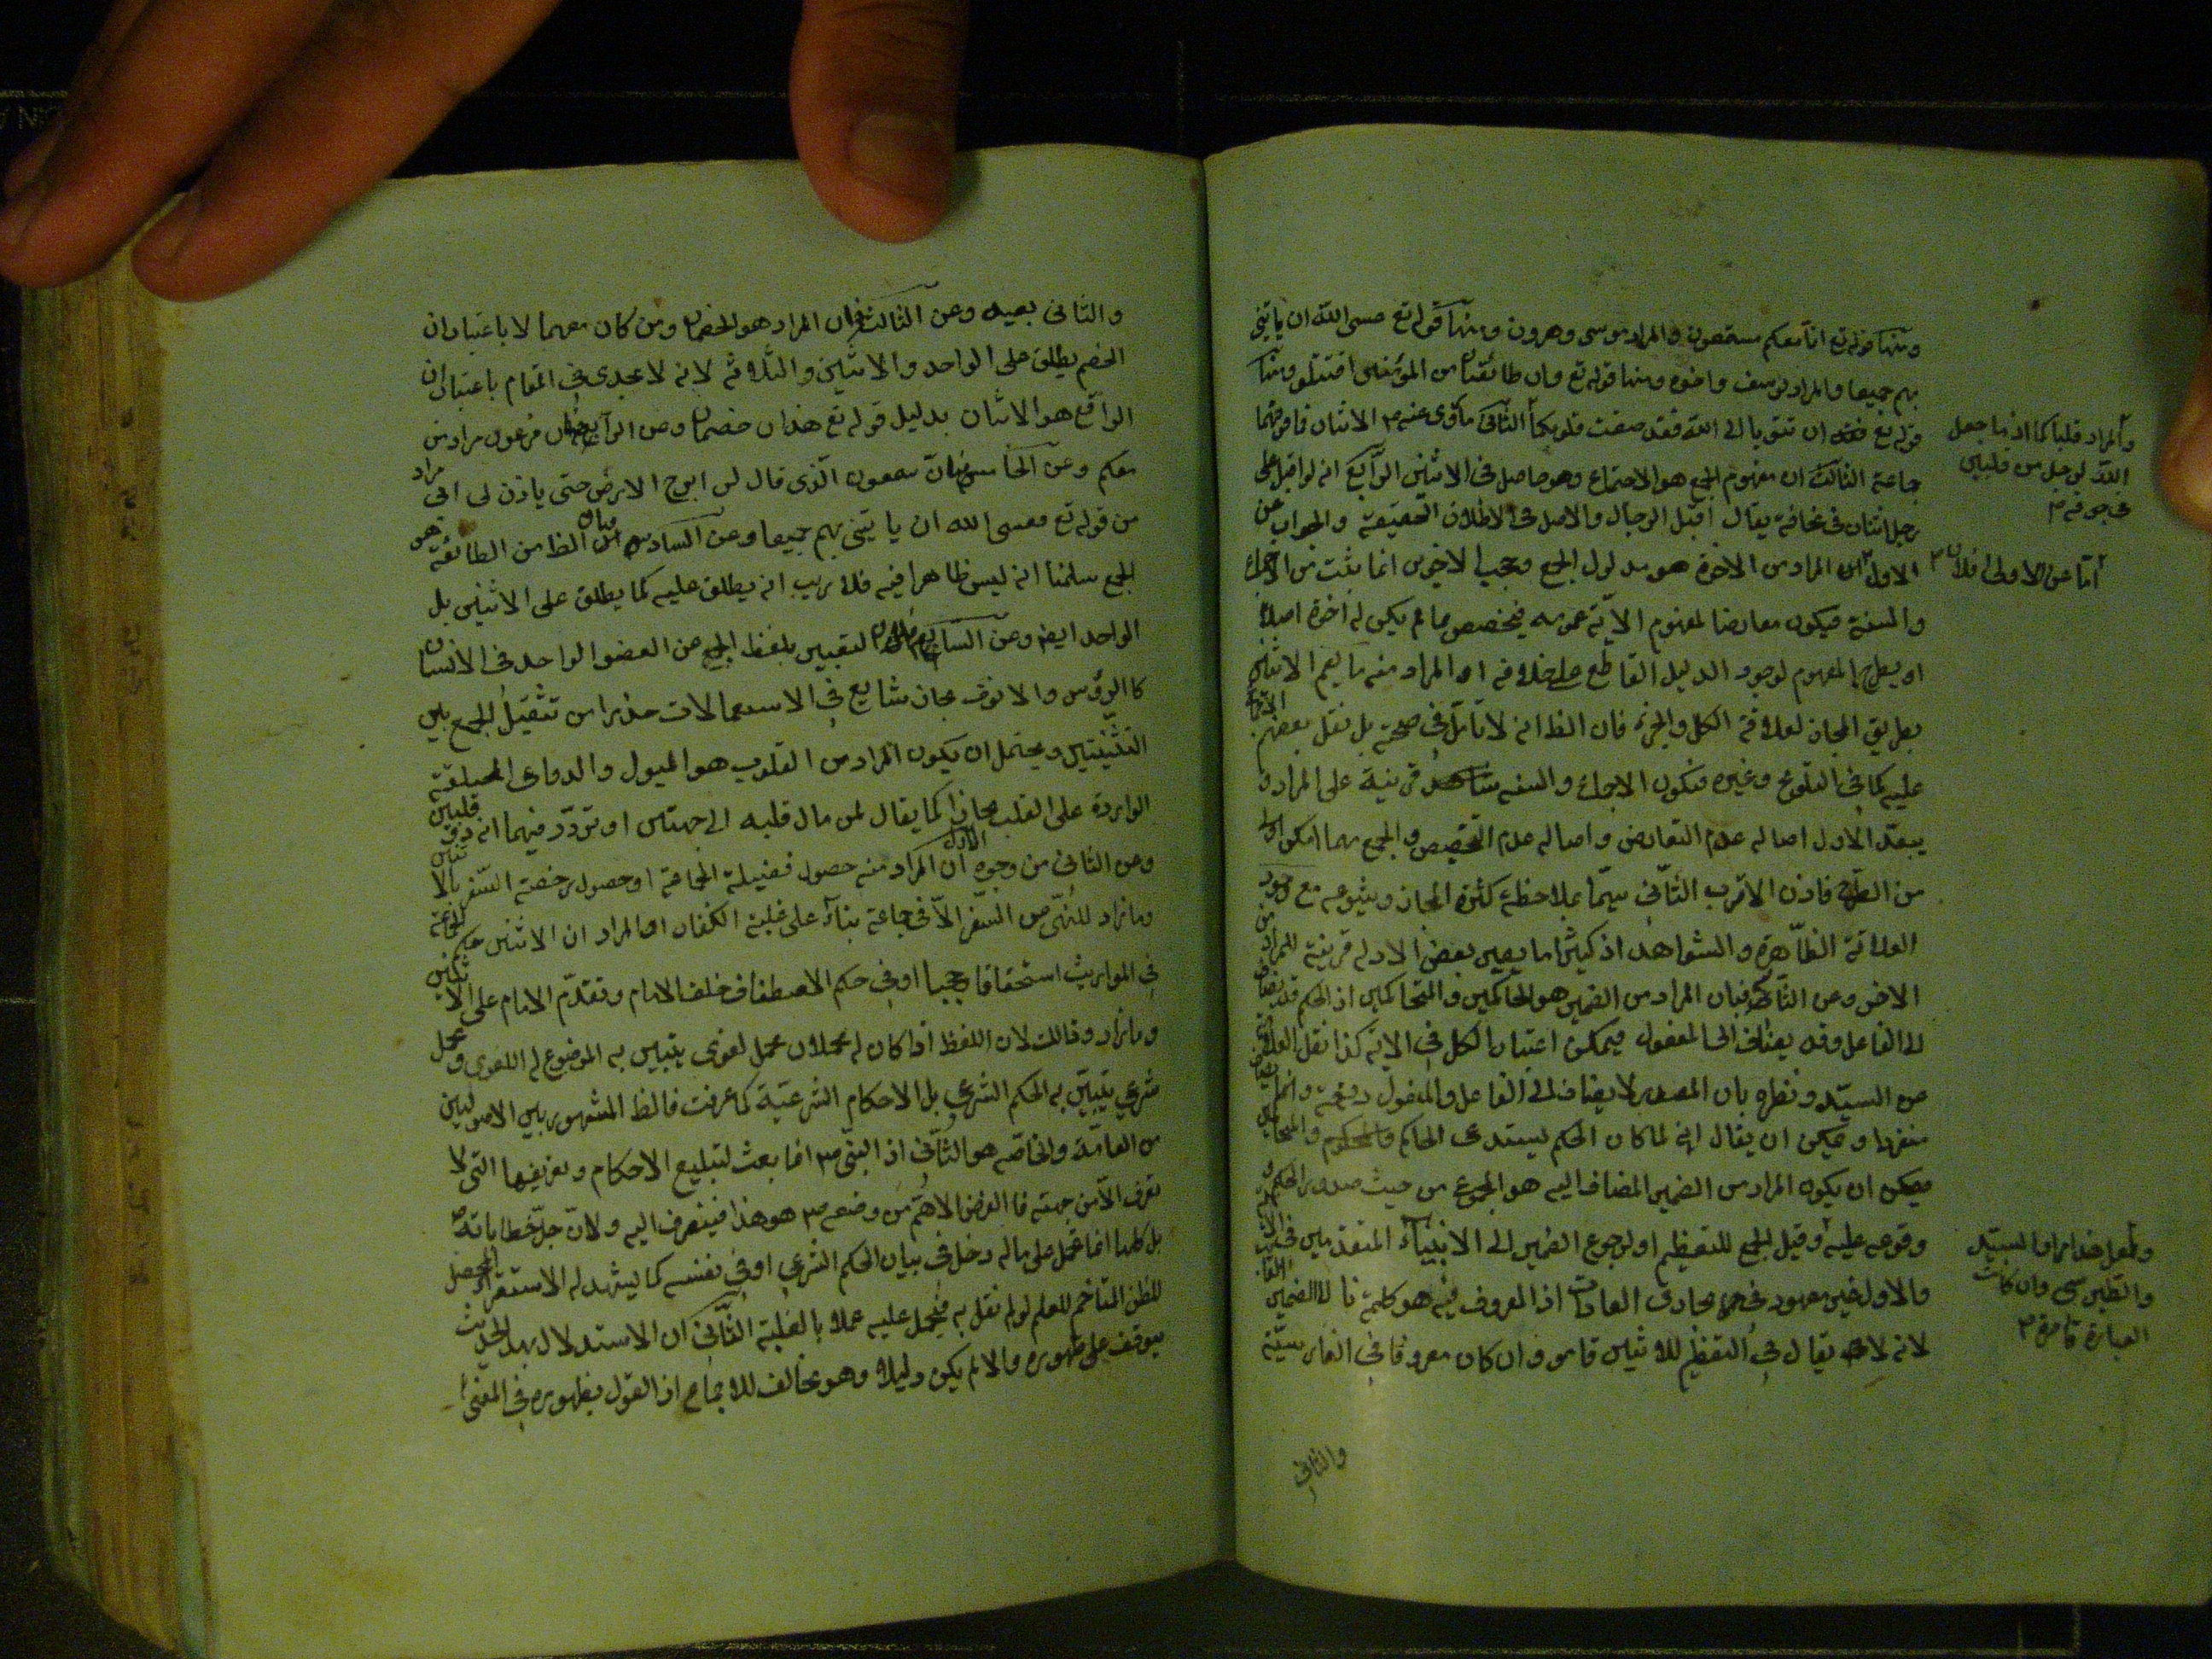 ومنها قوله تع انا معكم مستمعون والمراد موسى وهرون ومنها قوله تع عسى الله ان ياتينى
بهم جميعا والمراد يوسف واخوه ومنها قوله تع وان طائفتان من المؤمنين اقتتلو ومنها
قوله تع ان تتوبا الى الله فقد صغت قلوبكما الثانى ما روى عنه ص الاثنان فما فوقهما
جماعة الثالث ان مفهوم الجمع هو الاجتماع وهو حاصل فى الاثنين الرابع انه لو اقبل على
رجل اثنان فى مخافة يقال اقبل الرجال والاصل فى الاطلاق الحقيقة والجواب عن
الاول ان المراد من الاخوة هو مدلول الجمع وحجب الاخوين انما يثبت من الاجماع
والسنة فيكون معارضا لمفهوم الاية عمومه فيخصص بما لم يكن له اخوة اصلا
او يطرح المفهوم لوجود الدليل القاطع على خلافه او المراد منه ما يعم الاثنين
بطريق المجاز لعلاقة الكل والجزء فان الظ انه لا تامل فى صحته بل نقل بعضهم الاجماع
عليه كما فى التلويح وغيره فتكون الاجماع والسنه قرينة على المراد و
يبعد الاول اصالة عدم التعارض واصالة عدم التخصيص والجمع مهما امكن اولى
من الطرح فاذن الاقرب الثانى سيما بملاحظة كثرة المجاز وشيوعه مع وجود
العلاقة الظاهرة والشواهد اذ كثيرا ما يصير بعض الادلة قرينة للمراد من
الاخر وعن الثانى فبان المراد من الضمير هو الحاكمين والمتحاكمين اذ الحكم قد يضاف
الى الفاعل وقد يضاف الى المفعول فيمكن اعتبار الكل فى الاية كذا نقل
عن السيد ونظره بان المصدر لا يضاف الى الفاعل والمفعول دفعة وانما
منفردا ويمكن ان يقال انه لما كان الحكم يستدعى الحاكم والمحكوم
فيمكن ان يكون المراد من الضمير المضاف اليه هو المجموع من حيث صدور الحكم و
وقوعه عليه وقيل الجمع للتعظيم او لرجوع الضمير الى الانبياء المتقدمين
والاول غير معهود فى محاورى العادات اذ المعروف فيه هو كلمة نا
لانه لا يقال فى التعظيم للاثنين قاموا وان كان معروفا فى الفارسية
والثانى
والمراد قلباكما اذ ما جعل
الله لرجل من قلبين
فى جوفه
اما عن الاولى فلان
ولعل هذا مراد السيد
والطبرسى وان كانت
العبارة قاصرة
والثانى بعيد وعن الثالث فبان المراد هو الخصمان ومن كان معهما لا باعتبار ان
الخصم يطلق على الواحد والاثنين والثلاثة لانه لا يجدى فى المقام باعتبار ان
الواقع هو الاثنان بدليل قوله تع هذان خصمان وعن الرابع فبان فرعون مراد من
معكم وعن الخامس فبان شمعون الذى قال لن ابرح الارض حتى ياذن لى ابى مراد
من قوله تع فعسى الله ان ياتينى بهم جميعا وعن السادس فبان الظ من الطائفة هو
الجمع سلمنا انه ليس ظاهرا فيه فلا ريب انه يطلق عليه كما يطلق على الاثنين بل
الواحد ايضا وعن السابع فلان التعبير بلفظ الجمع عن العضو الواحد فى الانسان
كالرؤس والانوف مجاز شايع فى الاستعمالات حذرا من تثقيل الجمع بين
التثنيتين ويحتمل ان يكون المراد من القلوب هو الميول والدواعى المختلفة
الواردة على القلب مجازا كما يقال لمن مال قلبه الى جهتين او تردد فيهما انه ذو قلبين
وعن الثانى من وجوه الاول ان المراد منه حصول فضيلة الجماعة او حصول رخصة السفر بالاثنين
وما زاد للنهى عن السفر الا فى جماعة بناء على غلبة الكفار او المراد ان الاثنين حكم الجماعة
فى المواريث استحقاقا وحجبا او فى حكم الاصطفاف خلف الامام وتقدم الامام على الاثنين
وما زاد وذلك لان اللفظ اذا كان له محملان محمل لغوى يتبين به الموضوع له اللغوى ومحمل
شرعى يتبين به الحكم الشرعى بل الاحكام الشرعية كما عرفت فالظ المشهور بين الاصوليين
من العامة والخاصة هو الثانى اذ النبى ص انما بعث لتبليغ الاحكام وتعريفها التى لا
تعرف الا من جهته فالغرض الاهم من وضعه ص هو هذا فينصرف اليه ولان جل خطاباته ص
بل كلها انما تحمل على ماله دخل فى بيان الحكم الشرعى او فى نفسه كما يشهد له الاستقراء المحصل
للظن المتاخم للعلم لو لم نقل به فيحمل عليه عملا بالغلبة الثانى ان الاستدلال بهذا الحديث
يتوقف على ظهوره والا لم يكن دليلا وهو مخالف للاجماع اذ القول بظهوره فى المعنى